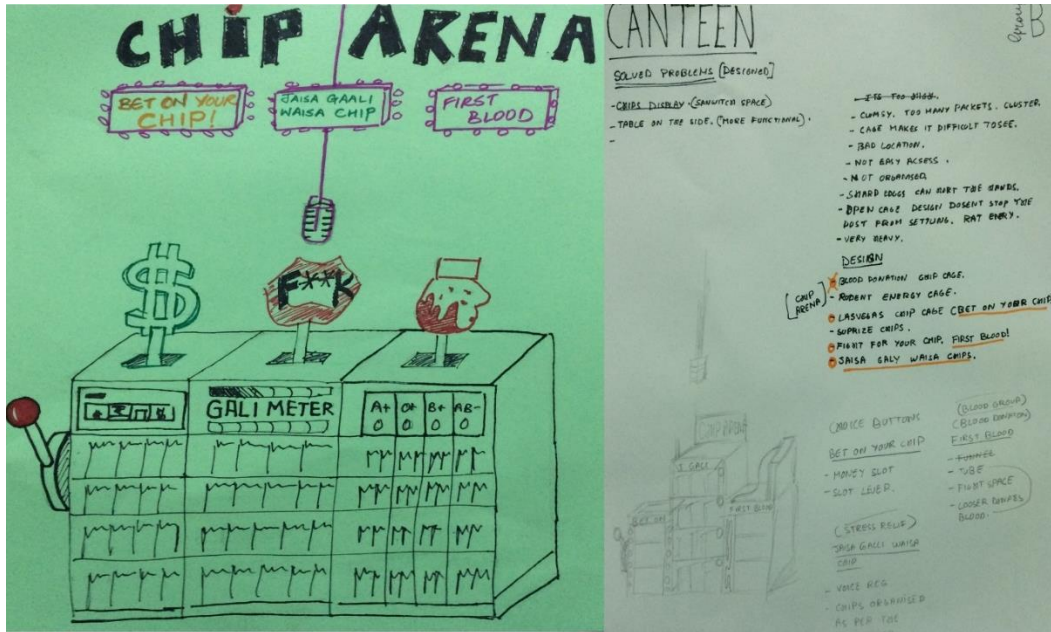 CHIP ARENA
BET ON YOUR
CHIP!
JAISA GAALI
WAISA CHIP
FIRST
BLOOD
$
F**K
GALI METER
A+ O+ B+ AB-
O O O O
CANTEEN
Group
B
SOLVED PROBLEMS [DESIGNED]
- CHIPS DISPLAY. (SANGWITCH SPACE)
- TABLE ON THE SIDE. (MORE FUNCTIONAL).
-
- CLUMSY. TOO MANY PACKETS. CLUSTER.
- CAGE MAKES IT DIFFICULT TO SEE.
- BAD LOCATION.
- NOT EASY ACSESS.
- NOT ORGANISED
- SHARD EDGES CAN HURT THE HANDS.
- OPEN CAGE DESIGN DOSENT STOP THE
DUST FROM SETTLING. RAT ENTRY.
- VERY HEAVY.
DESIGN
[CHIP
ARENA]
BLOOD DONATION CHIP CAGE.
- RODENT ENERGY CAGE.
LASVEGAS CHIP CAGE (BET ON YOUR CHIP
- SUPRIZE CHIPS.
FIGHT FOR YOUR CHIP. FIRST BLOOD!
JAISA GALY WAISA CHIPS.
CHOICE BUTTONS
BET ON YOUR CHIP
- MONEY SLOT
- SLOT LEVER.
(STRESS RELIEF)
JAISA GALLI WAISA
CHIP
- VOICE REG
- CHIPS ORGANISED
AS PER THE
(BLOOD GROUP)
(BLOOD DONATION)
FIRST BLOOD
- FUNNEL
- TUBE
- FIGHT SPACE
- LOOSER DONATES
BLOOD.
CHIP ARENA
BET ON
FIRST BLOOD